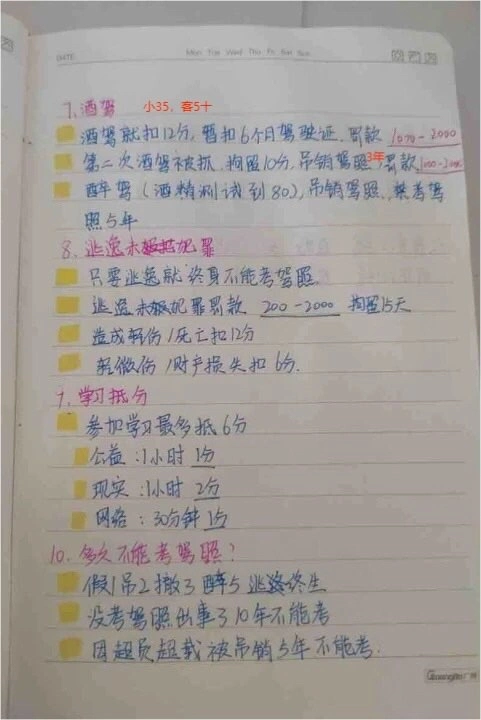 DATE
Mon Tue Wed Thu Fri Sat Sun
7. 酒驾 小35，客5十
酒驾就扣12分，暂扣6个月驾驶证，罚款 1000-2000
第二次酒驾被抓，拘留10分，吊销驾照3年，罚款1000-2000
醉驾（酒精测试到80），吊销驾照，禁考驾
照5年
8. 逃逸未被犯罪
只要逃逸就终身不能考驾照
逃逸未被犯罪罚款 200-2000 拘留15天
造成轻伤/死亡扣12分
轻微伤/财产损失扣6分.
9. 学习抵分
参加学习最多抵6分
公益：1小时 1分
现实：1小时 2分
网络：30分钟 1分
10. 多久不能考驾照？
假1吊2撤3醉5逃终生
没考驾照出事了10年不能考
因超员超载被吊销5年不能考.
Guangbo